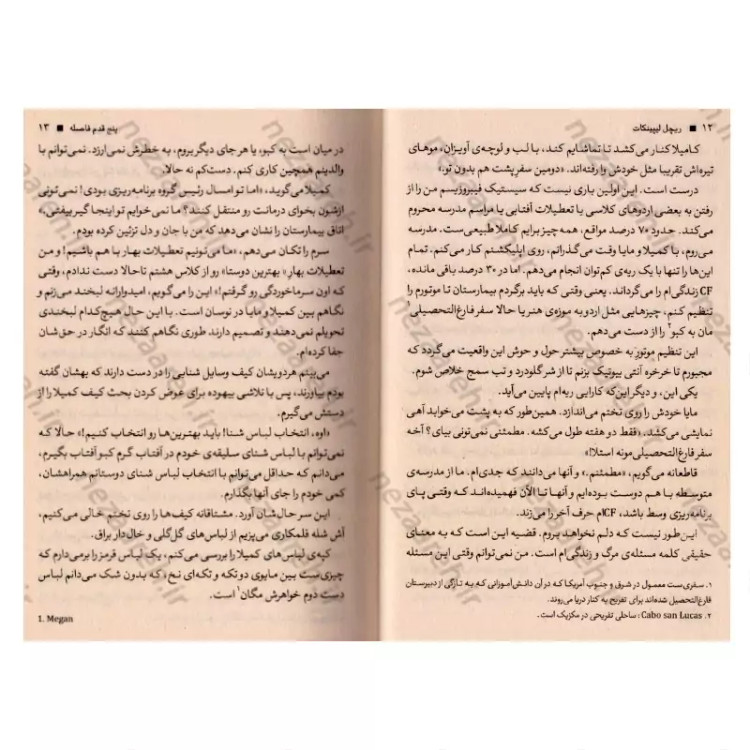 ۱۲ ■ ریچل لیپینکات
کامیلا کنار می‌کشد تا تماشایم کند، با لب و لوچه‌ی آویزان، موهای
تیره‌اش تقریبا مثل خودش را رفته‌اند. «دومین سفر پشت هم بدون تو.»
درست است. این اولین باری نیست که سیستیک فیبروزیسم من را از
رفتن به بعضی اردوهای کلاسی یا تعطیلات آفتابی یا مراسم مدرسه محروم
می‌کند. حدود ۷۰ درصد مواقع، همه چیز برایم کاملا طبیعی‌ست. مدرسه
می‌روم، با کمیلا و مایا وقت می‌گذرانم، روی اپلیکشنم کار می‌کنم. تمام
این‌ها را تنها با یک ریه‌ی کم‌توان انجام می‌دهم. اما در ۳۰ درصد باقی مانده،
CF زندگی‌ام را می‌گرداند. یعنی وقتی که باید برگردم بیمارستان تا موتورم را
تنظیم کنم، چیزهایی مثل اردو به موزه‌ی هنر یا حالا سفر فارغ‌التحصیلی۱
مان به کبو۲ را از دست می‌دهم.
این تنظیم موتور به خصوص بیشتر حول و حوش این واقعیت می‌گردد که
مجبورم تا خرخره آنتی بیوتیک بزنم تا از شر گلودرد و تب سمج خلاص شوم.
یکی این، و دیگر این‌که کارایی ریه‌ام پایین می‌آید.
مایا خودش را روی تختم می‌اندازد. همین‌طور که به پشت می‌خوابد آهی
نمایشی می‌کشد. «فقط دو هفته طول می‌کشه. مطمئنی نمی‌تونی بیای؟ آخه
سفر فارغ‌التحصیلی‌مونه استلا!»
قاطعانه می‌گویم، «مطمئنم.» و آنها می‌دانند که جدی‌ام. ما از مدرسه‌ی
متوسطه با هم دوست بوده‌ایم و آنها تا الآن فهمیده‌اند که وقتی پای
برنامه‌ریزی وسط باشد، CFام حرف آخر را می‌زند.
این‌طور نیست که دلم نخواهد بروم. قضیه این است که به معنای
حقیقی کلمه مسئله‌ی مرگ و زندگی‌ام است. من نمی‌توانم وقتی این مسئله
۱. سفری‌ست معمول در شرق و جنوب آمریکا که در آن دانش‌آموزانی که به تازگی از دبیرستان
فارغ‌التحصیل شده‌اند برای تفریح به کنار دریا می‌روند.
۲. Cabo san Lucas: ساحلی تفریحی در مکزیک است.
پنج قدم فاصله ■ ۱۳
در میان است به کبو، یا هر جای دیگر بروم، به خطرش نمی‌ارزد. نمی‌توانم با
والدینم همچین کاری کنم. دست‌کم نه حالا.
کمیلا می‌گوید، «اما تو امسال رئیس گروه برنامه‌ریزی بودی! نمی‌تونی
ازشون بخوای درمانت رو منتقل کنند؟ ما نمی‌خوایم تو اینجا گیر بیفتی.»
اتاق بیمارستان را نشان می‌دهد که من با جان و دل تزئین کرده بودم.
سرم را تکان می‌دهم، «ما می‌تونیم تعطیلات بهار با هم باشیم! و من
تعطیلات بهارِ «بهترین دوستا» رو از کلاس هشتم تا حالا دست ندادم، وقتی
که اون سرماخوردگی رو گرفتم!» این را می‌گویم، امیدوارانه لبخند می‌زنم و
نگاهم بین کمیلا و مایا در نوسان است. با این حال هیچ‌کدام لبخندی
تحویلم نمی‌دهند و تصمیم دارند طوری نگاهم کنند که انگار در حق‌شان
جفا کرده‌ام.
می‌بینم هردویشان کیف وسایل شنایی را در دست دارند که بهشان گفته
بودم بیاورند، پس با تلاشی بیهوده برای عوض کردن بحث کیف کمیلا را از
دستش می‌گیرم.
«اوه، انتخاب لباس شنا! باید بهترین‌ها رو انتخاب کنیم!» حالا که
نمی‌توانم با لباس شنای سلیقه‌ی خودم در آفتاب گرم کبو آفتاب بگیرم،
می‌دانم که حداقل می‌توانم با انتخاب لباس شنای دوستانم همراهشان،
کمی خودم را جای آنها بگذارم.
این سر حال‌شان آورد. مشتاقانه کیف‌ها را روی تختم خالی می‌کنیم،
آش شله قلمکاری می‌پزیم از لباس‌های گل‌گلی و خال‌دار براق.
کپه‌ی لباس‌های کمیلا را بررسی می‌کنم، یک لباس قرمز را برمی‌دارم که
چیزی‌ست بین مایوی دو تکه و تکه‌ای نخ، که بدون شک می‌دانم لباس
دست دوم خواهرش مگان۱ است.
1. Megan
nezaareh.ir